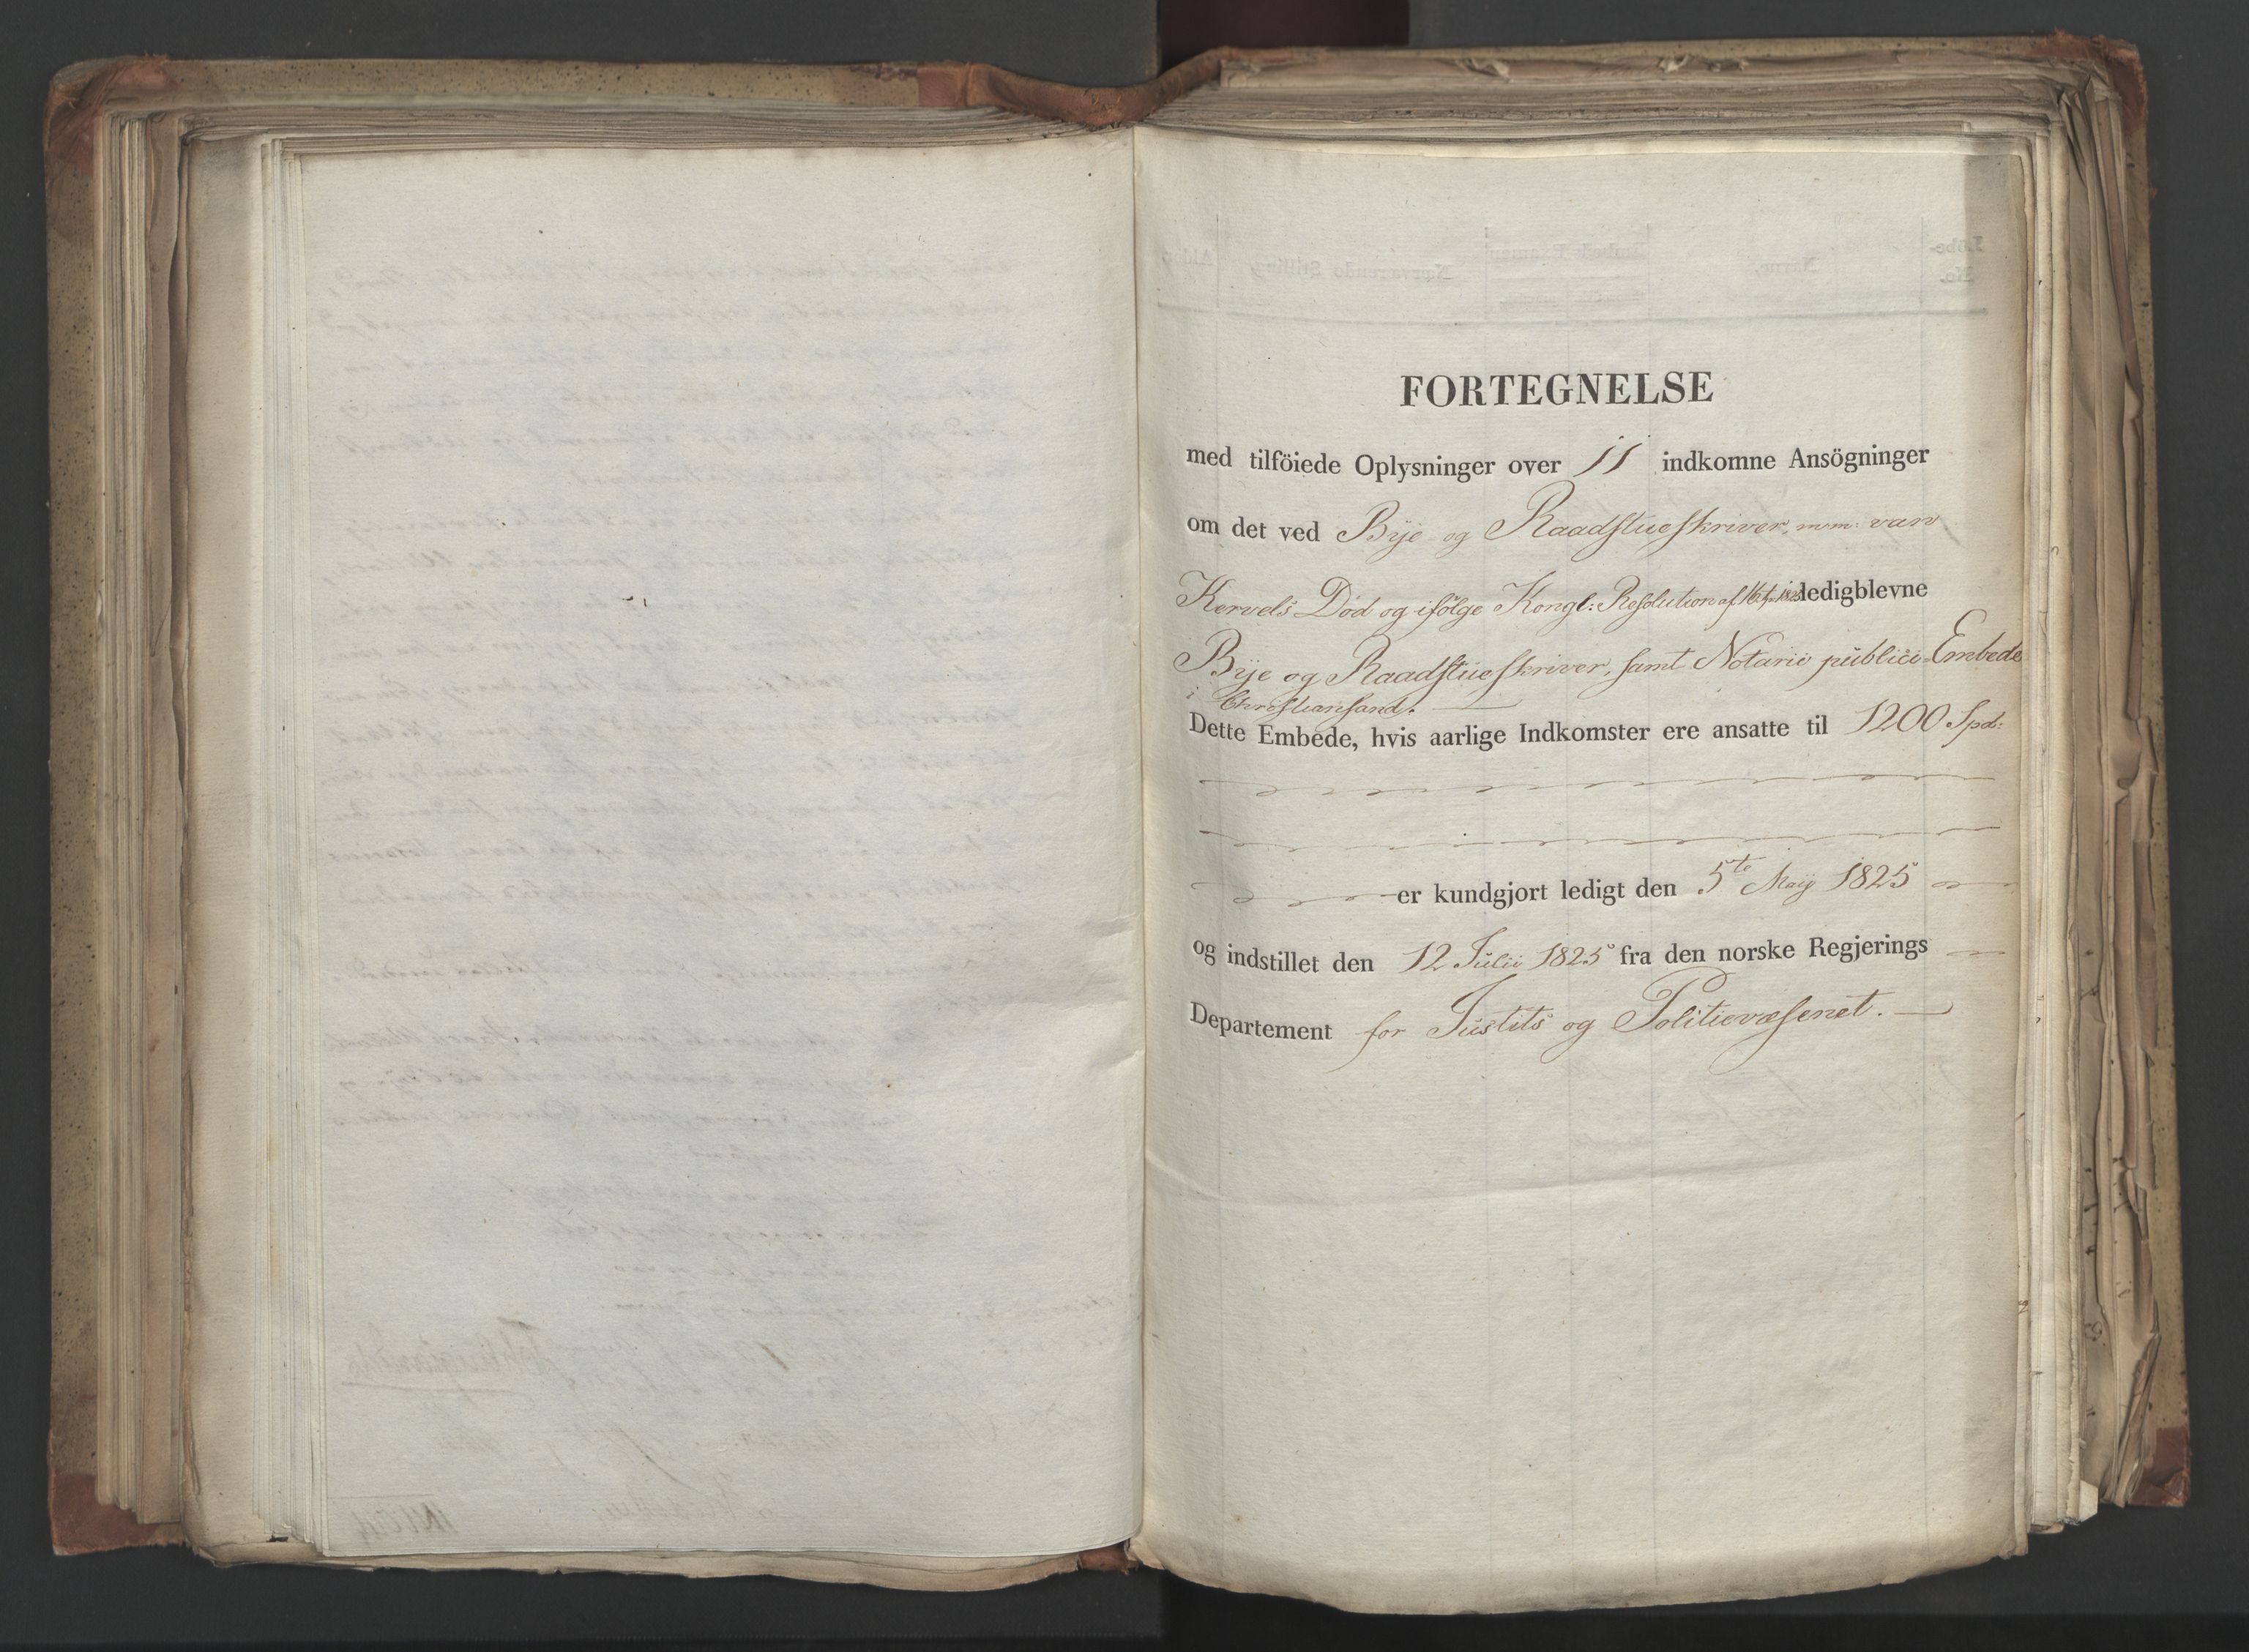 FORTEGNELSE
med tilföiede Oplysninger over 11 indkomne Ansögninger
om det ved Bÿe og Raadstueskriver, m.m: van
Kervels Død og ifølge Kongl: Resolution af ledigblevne
Bÿe og Raadstueskriver, samt Notarii publici-Embede
i Christiansand.
Dette Embede, hvis aarlige Indkomster ere ansatte til 1200 Spd:
er kundgjort ledigt den 5te Maÿ 1825
og indstillet den 12 Julii 1825 fra den norske Regjerings
Departement for Justits og Politievæsenet.